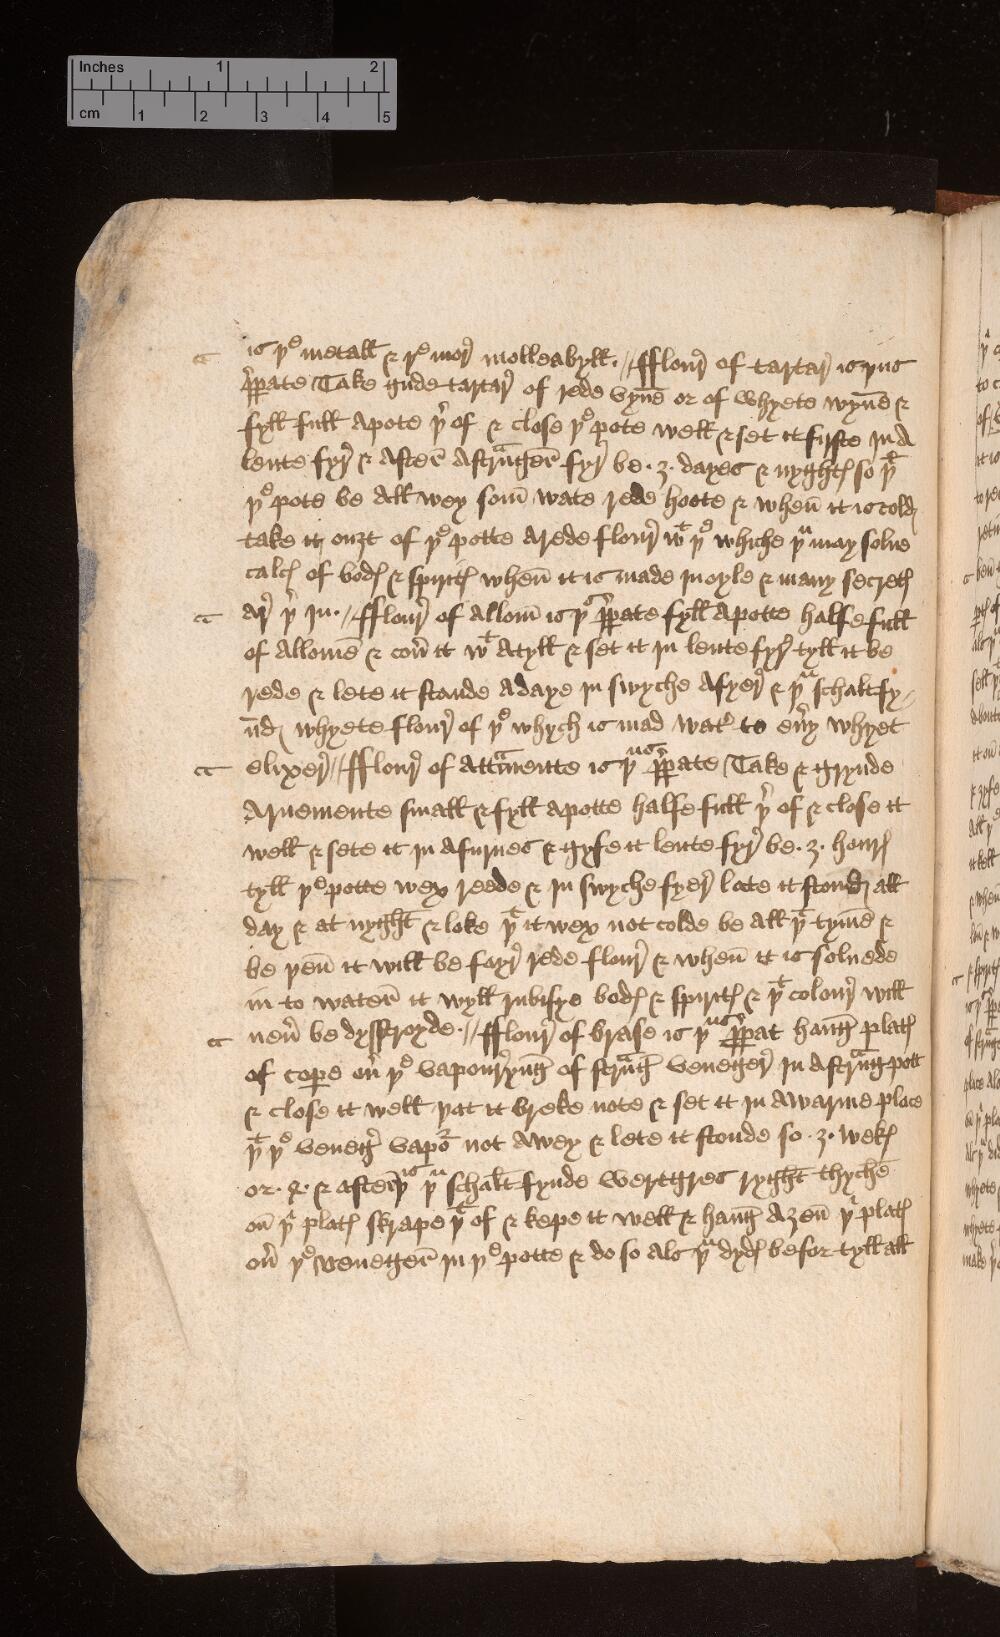 Inches 1 2
cm 1 2 3 4 5
is þe metall & þe morͬ molleabyll · // fflourͬ of tartarͬ is þus
p̲p̲ate Take gude tartarͬ of rede vyne or of whyete wyne &
fyll full a pote þͬ of & close þe pote well & set it fyrste in A
lente fyrͬ & Afterͬ A stranger fyrͬ be · 3 · dayes & nyghtes so þt
þe pote be All wey som wate rede hoote & when it is cold
take it out of þe potte A rede flourͬ wt þe whiche þu may solue
calces of bodes & spirites when it is made in oyle & many secretes
arͬ þͬ in · // fflourͬ of Allom is þus p̲p̲ate fyll A potte halfe full
of Allome & couͬ it wt A tyll & set it in lente fyrͬ tyll it be
rede & lete it stonde A daye in swyche A fyerͬ & þu schalt fy
nd whyete flourͬ of þe whych is mad watͬ to euͬy whyet
elixerͬ // fflourͬ of Attramente is þus p̲p̲ate Take & grynde
Arnemente small & fyll A potte halfe full þͬ of & close it
well & sete it in A furnes & gyfe it lente fyrͬ be · 3 · houres
tyll þe potte wex reede & in swyche fyerͬ late it stond all
day & at nyght & loke þt it wex not colde be all þt tyme &
be þen it will be fayrͬ rede flourͬ & when it is soluede
in to waterͬ it wyll rubifye bodes & spirites & þt colourͬ will
neuͬ be dystroyde · // fflourͬ of brase is þus p̲p̲at hang plates
of cop̲e ouͬ þe vapourͬyng of strang venegerͬ in A strang pott
& close it well þat it breke note & set it in A warme place
þt þe venegͬ vapoͬ not Awey & lete it stonde so · 3 · wekes
or · 4 · & after þis þu schalt fynde vertgres ryght thyche
on þͬ plates skrape þt of & kepe it well & hang Aȝen þͬ plates
ouͬ þe veneger in þe potte & do so als þu dydes befor tyll all